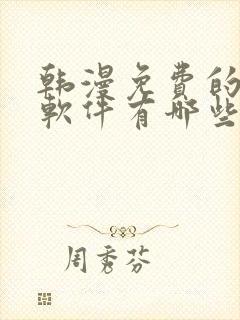 韩漫免费的
軟件有哪些
周秀芬